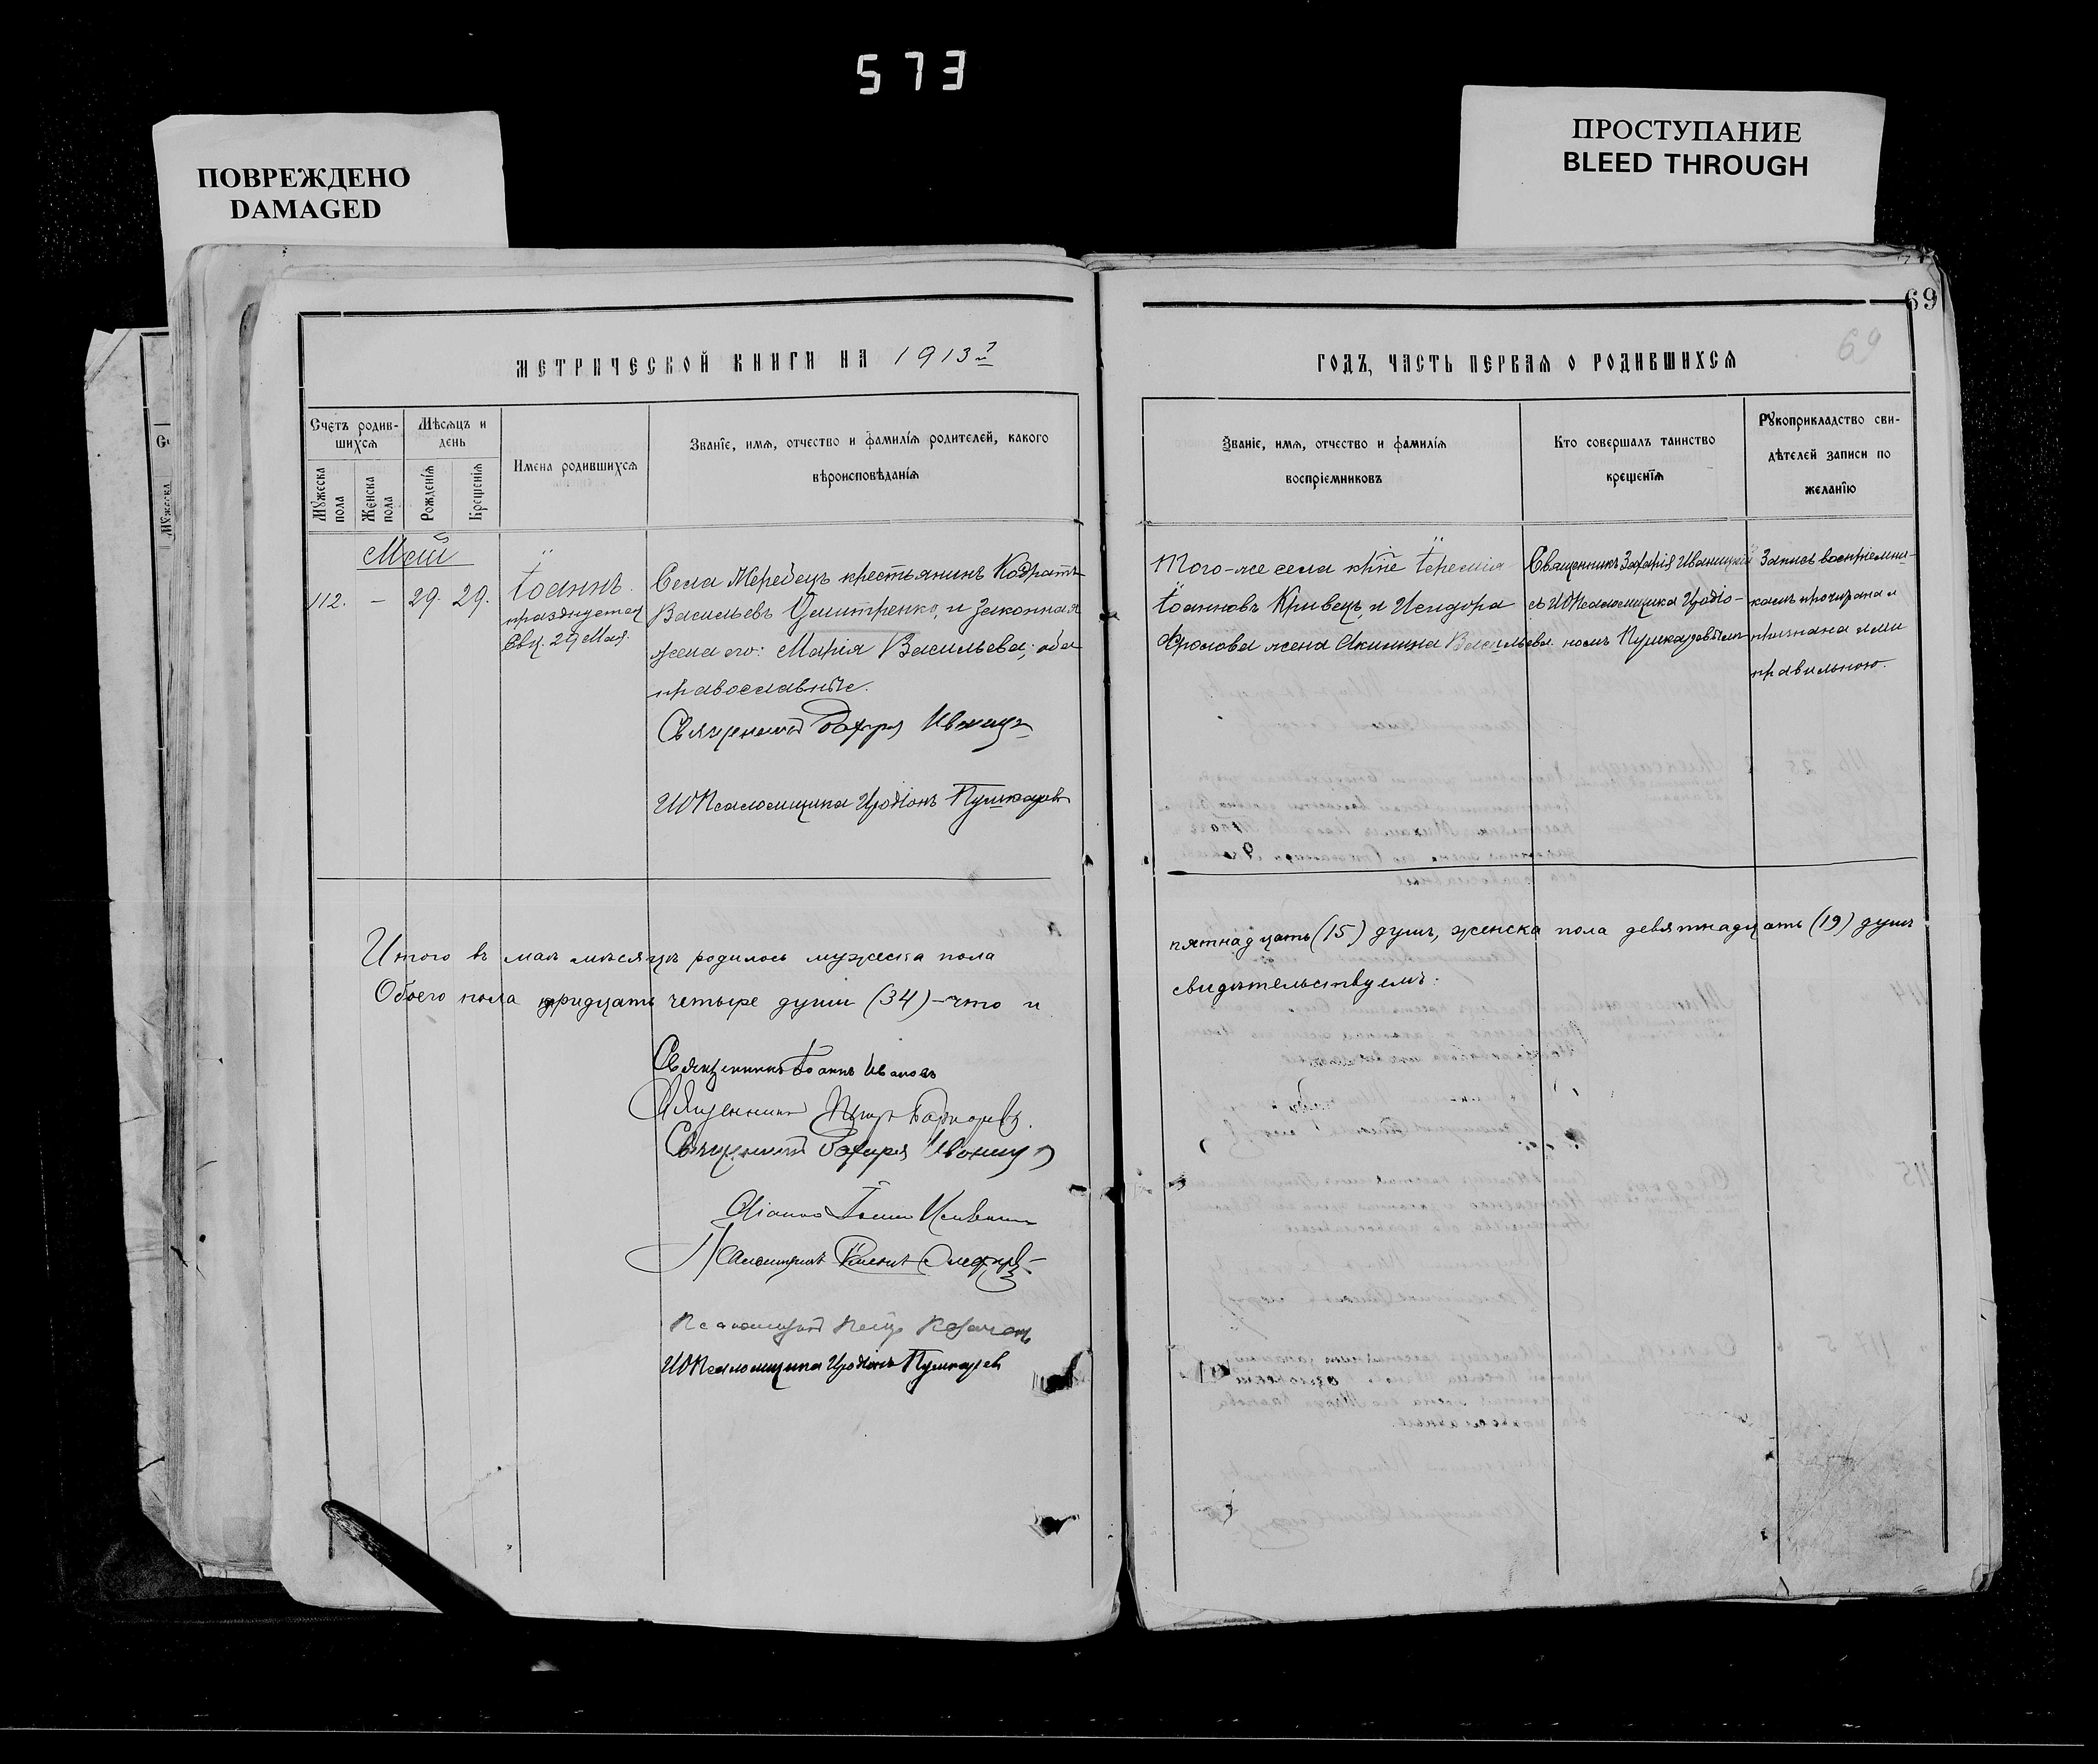 573
ПОВРЕЖДЕНО
DAMAGED
ПРОСТУПАНИЕ
BLEED THROUGH
69
69
МЕТРИЧЕСКОЙ КНИГИ НА 1913 й
ГОДЪ, ЧАСТЬ ПЕРВАЯ О РОДИВШИХСЯ
Счетъ родив-
шихся
Мужеска пола
Женска пола
Мѣсяцъ и
день
Рожденія
Крещенія
Имена родившихся
Званіе, имя, отчество и фамилія родителей, какого
вѣроисповѣданія
Званіе, имя, отчество и фамилія
воспріемниковъ
Кто совершалъ таинство
крещенія
Рукоприкладство сви-
дѣтелей записи по
желанію
Май
112. — 29. 29.
Іоаннъ.
празднуется
29 Мая.
Села Мередецъ крестьянинъ Кодратъ
Васильевъ Дмитренко, и законная
жена его: Марія Васильева; оба
православные.
Священникъ Захарія Иваницк
ИОПсаломщика Иродіонъ Пушкаревъ
Того-же села Іеремія
Іоанновъ Кривецъ и Исидора
Фролова жена Акилина Васильева.
Священникъ Захарія Иваницкій
съ ИОПсаломщика Иродіо-
номъ Пушкаревымъ
Запись воспріемни-
камъ прочитана и
признана ими
правильною.
Итого въ маѣ мѣсяцѣ родилось мужеска пола
пятнадцать (15) душъ, женска пола девятнадцать (19) душъ
Обоего пола тридцать четыре души (34) – что и
свидѣтельствуемъ:
Священникъ Іоаннъ Ивановъ
Священникъ Петръ
Священникъ Захарія Иваницк
Діаконъ Іоаннъ
Псаломщикъ
Псаломщикъ Петръ
ИОПсаломщика Иродіонъ Пушкарев